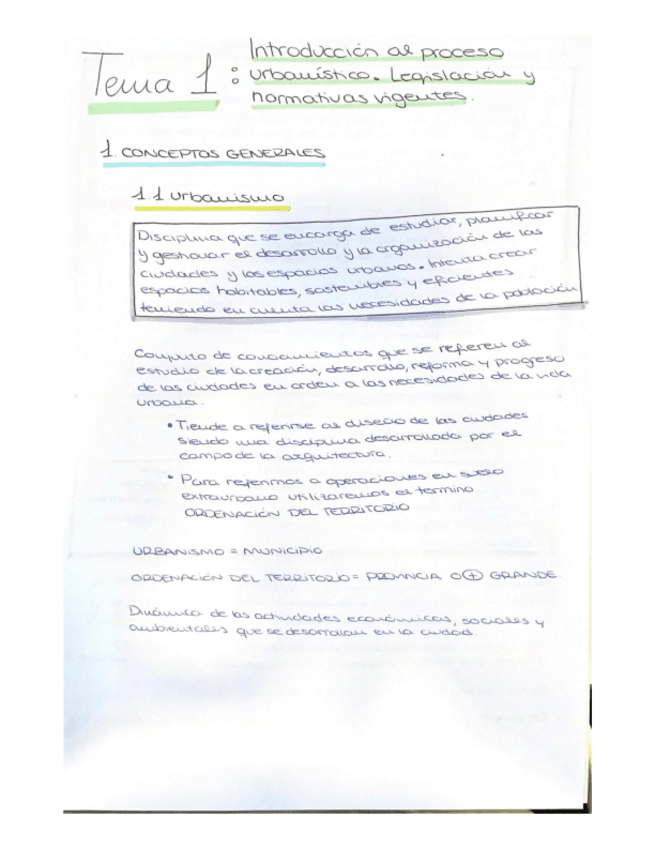 Tema 1: Introducción al proceso
urbanístico. Legislación y
normativas vigentes.
1. CONCEPTOS GENERALES
1.1 Urbanismo
Disciplina que se encarga de estudiar, planificar
y gestionar el desarrollo y la organización de las
ciudades y los espacios urbanos. Intenta crear
espacios habitables, sostenibles y eficientes
teniendo en cuenta las necesidades de la población
Conjunto de conocimientos que se refieren al
estudio de la creación, desarrollo, reforma y progreso
de las ciudades en orden a las necesidades de la vida
urbana.
• Tiende a referirse al diseño de las ciudades
siendo una disciplina desarrollada por el
campo de la arquitectura.
• Para referirnos a operaciones en suelo
extraurbano utilizaremos el termino
ORDENACIÓN DEL TERRITORIO
URBANISMO = MUNICIPIO
ORDENACIÓN DEL TERRITORIO = PROVINCIA O (+) GRANDE.
Dinámica de las actividades económicas, sociales y
ambientales que se desarrollan en la ciudad.